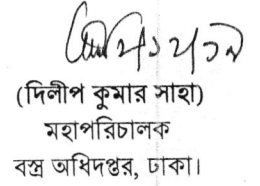 (দিলীপ কুমার সাহা)
মহাপরিচালক
বস্ত্র অধিদপ্তর, ঢাকা।